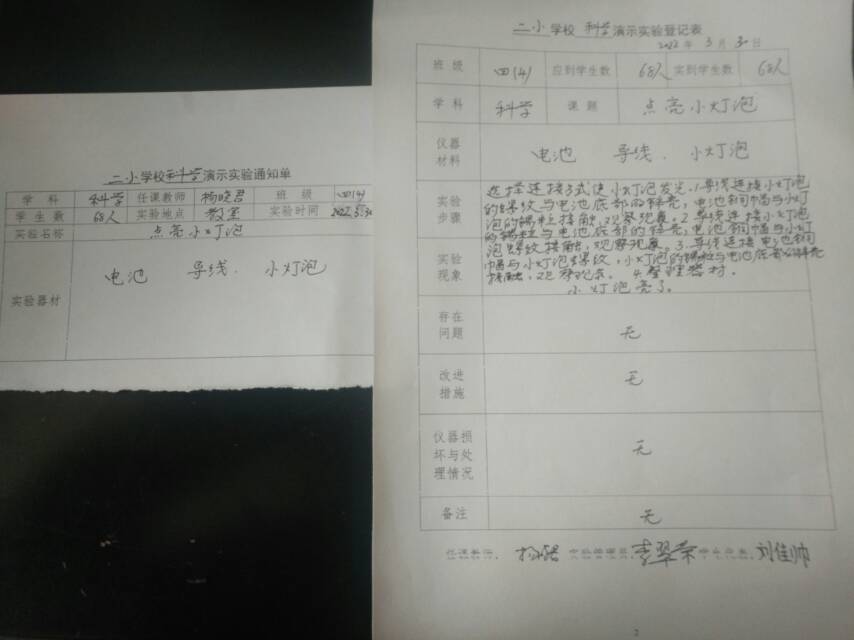 二小学校科学演示实验通知单
学科 科学 任课教师 杨晓君 班级 四(4)
学生数 68人 实验地点 教室 实验时间 2022.3.30
实验名称 点亮小灯泡
实验器材 电池 导线. 小灯泡
二小学校 科学演示实验登记表
2022年3月30日
班级 四(4) 应到学生数 68人 实到学生数 68人
学科 科学 课题 点亮小灯泡
仪器材料 电池 导线. 小灯泡
实验步骤 选择连接方式使小灯泡发光.1.导线连接小灯泡
的螺纹与电池底部的锌壳,电池铜帽与小灯
泡的锡粒接触,观察现象。2.导线连接小灯泡
的锡粒与电池底部的锌壳,电池铜帽与小灯
实验现象 泡螺纹接触,观察现象。3.导线连接电池铜
帽与小灯泡螺纹,小灯泡的锡粒与电池底部的锌壳
接触,观察现象。 4.整理器材.
小灯泡亮了。
存在问题 无
改进措施 无
仪器损坏与处理情况 无
备注 无
任课教师: 实验管理员:李翠荣 学生代表:刘佳帅
2